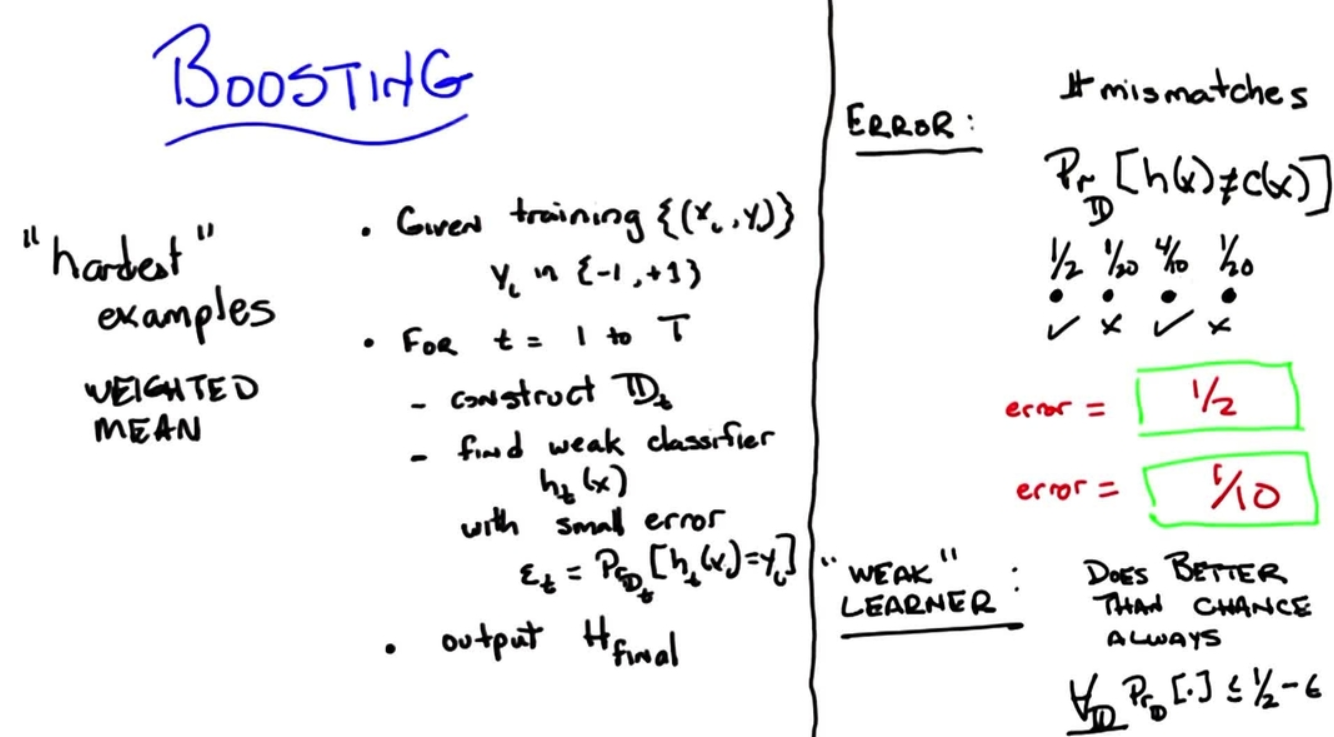 BOOSTING
"hardest"
examples
WEIGHTED
MEAN
• Given training {(xᵢ, yᵢ)}
yᵢ in {-1, +1}
• For t = 1 to T
- construct 𝔻ₜ
- find weak classifier
hₜ(x)
with small error
εₜ = Pr_𝔻ₜ [hₜ(xᵢ)=yᵢ]
• output H_final
ERROR:
# mismatches
Pr_𝔻 [h(x)≠c(x)]
1/2 1/20 4/10 1/20
• • • •
✓ x ✓ x
error = 1/2
error = 1/10
"WEAK"
LEARNER :
DOES BETTER
THAN CHANCE
ALWAYS
∀_𝔻 Pr_𝔻 [·] ≤ 1/2 - ϵ